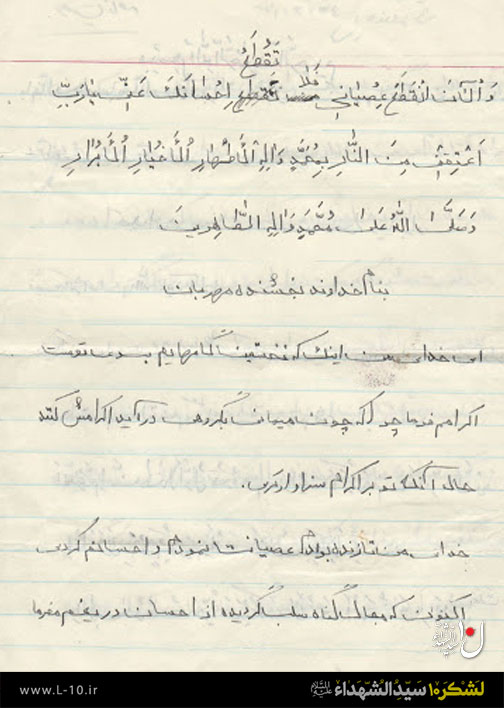 تَقْطَعْ
وَ الْآنَ انْقَطَعَ عِصْیَانِي فَلَا تَقْطَعْ اِحْسَانَكَ عَنِّي یَا رَبِّ
اَعْتِقْنِي مِنَ النَّارِ بِمُحَمَّدٍ وَ الِهِ الْأَطْهَارِ الْأَخْیَارِ الْأَبْرَارِ
وَ صَلَّی اللهُ عَلَی مُحَمَّدٍ وَ الِهِ الطَّاهِرِینَ
بنام خداوند بخشنده مهربان
ای خدای من اینک که نخستین گامهایم بسوی توست
اکرامم فرما چرا که چون میهمان بگروهی درآید اکرامش کنند
حال آنکه تو بر اکرام سزاوارتری.
خدای من تا زنده بودم عصیانت نمودم و احسانم کردی
اکنون که مجال گناه سلب گردیده از احسان دریغم مفرما
www.L-10.ir
لشکر۱۰ سیدالشهداء علیه‌السلام